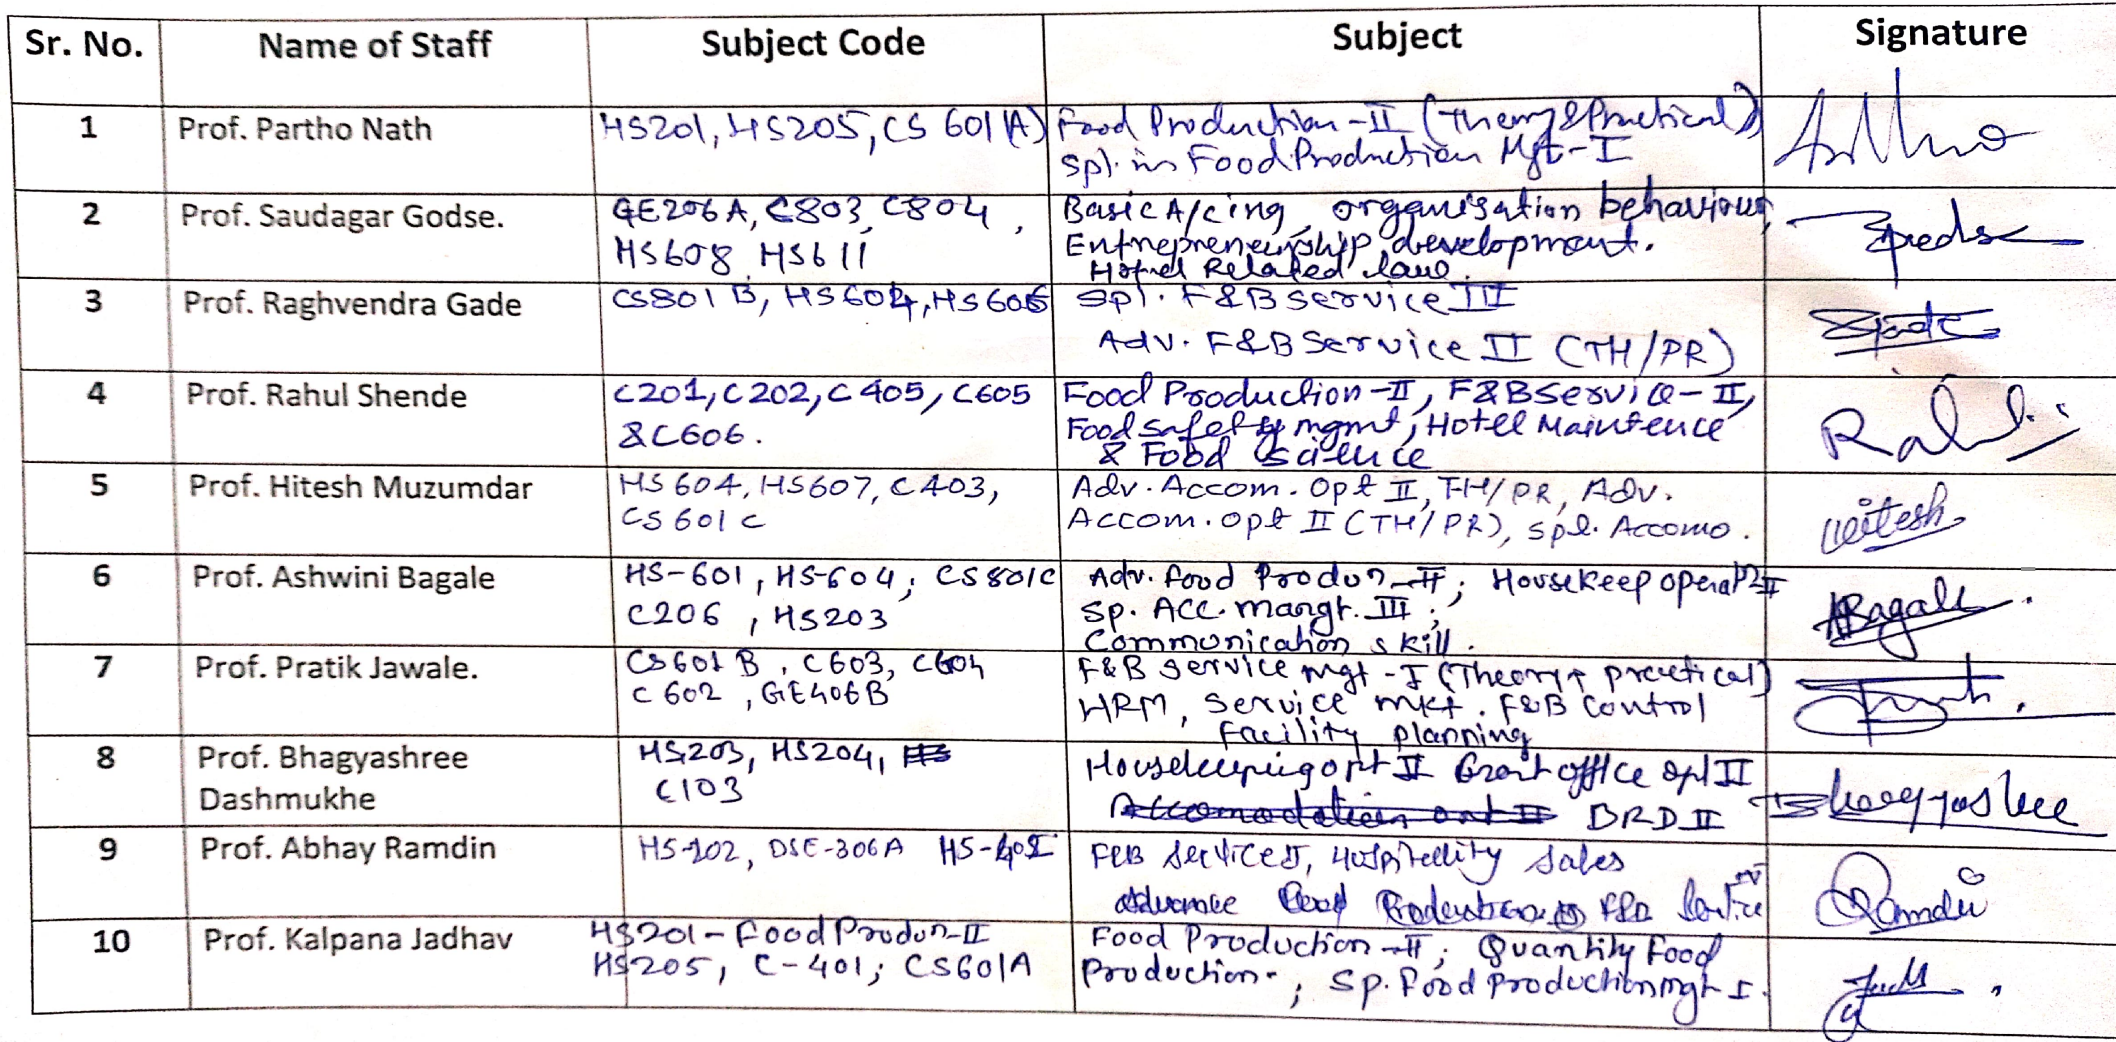 Sr. No. Name of Staff Subject Code Subject Signature
1 Prof. Partho Nath HS201, HS205, CS 601(A) Food Production-II (Theory & Practical)
Spl. in Food Production Mgt-I
2 Prof. Saudagar Godse. GE206A, C803, C804, Basic A/cing, organisation behaviour,
HS608, HS611 Entrepreneurship development.
Hotel Related law.
3 Prof. Raghvendra Gade CS801 B, HS602, HS606 Spl. F&B Service III
Adv. F&B Service II (TH/PR)
4 Prof. Rahul Shende C201, C202, C405, C605 Food Production-II, F&B Service-II, Rahul
&C606. Food safety mgmt, Hotel Maintence
& Food Science
5 Prof. Hitesh Muzumdar HS604, HS607, C403, Adv. Accom. Opt II, TH/PR, Adv. Hitesh
CS601C Accom. opt II (TH/PR), spl. Accomo.
6 Prof. Ashwini Bagale HS-601, HS-604; CS801C Adv. food Produn-II; Housekeep operatn II ABagale.
C206, HS203 Sp. Acc. mangt. III;
Communication skill.
7 Prof. Pratik Jawale. CS601 B, C603, C604 F&B service mgt-I (Theory + practical)
C602, GE406B HRM, Service mkt. F&B control
Facility planning
8 Prof. Bhagyashree HS203, HS204, Housekeeping opt II Front office opt II Bhagyashree
Dashmukhe C103 DRD II
9 Prof. Abhay Ramdin HS-202, DSE-306A HS-402 F&B Service II, Hospitality Sales Ramdin
Advance Food Production & F&B Service IV
10 Prof. Kalpana Jadhav HS201-Food Produn-II Food Production-II; Quantity Food
HS205, C-401; CS601A Production; Sp. Food Production mgt I.